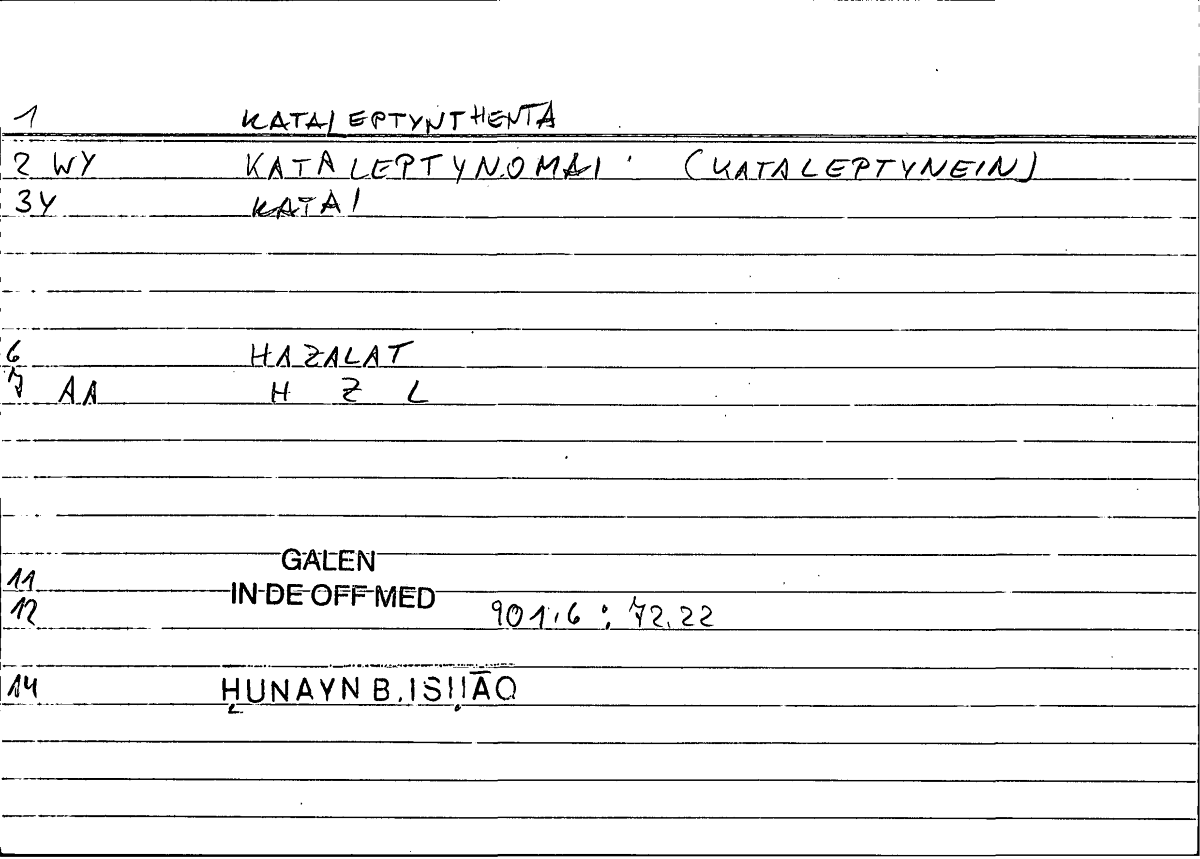 1 KATALEPTYNTHENTA
2 WY KATALEPTYNOMAI · (KATALEPTYNEIN)
3Y KATAI
6 HAZALAT
7 AA H Z L
GALEN
11 IN DE OFF MED
12 901.6 : 72.22
14 ḤUNAYN B. ISḤĀQ